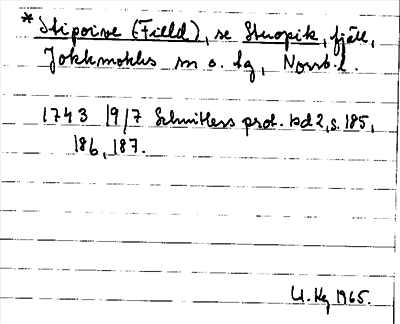 * Stipoive (Field), se Stuopik, fjäll,
Jokkmokks sn o. tg, Norrb. l.
1743 19/7 Schnitlers prot. bd 2, s. 185,
186, 187.
1965.